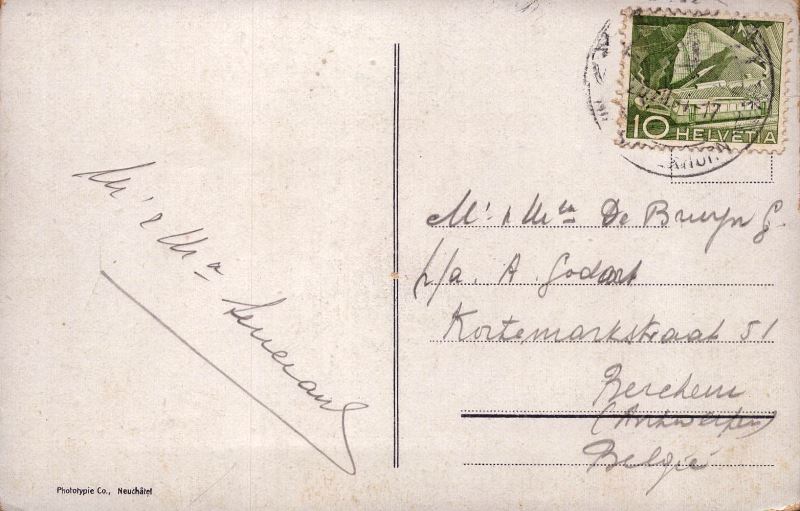 10 HELVETIA
Mr & Mme
Mr & Mme De Bruyn G.
p/a. A. Godart
Kortemarkstraat 51
Berchem
(Antwerpen)
België
Phototypie Co., Neuchâtel